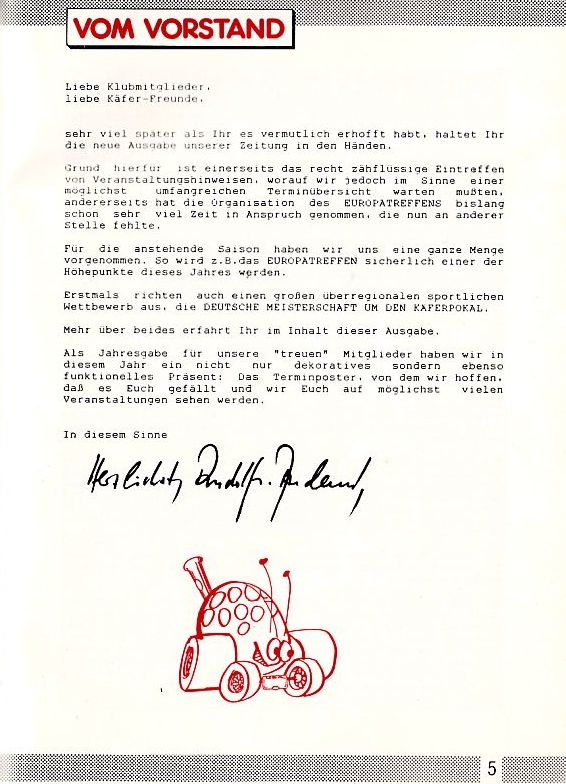 VOM VORSTAND
Liebe Klubmitglieder,
liebe Käfer-Freunde,
sehr viel später als Ihr es vermutlich erhofft habt, haltet Ihr
die neue Ausgabe unserer Zeitung in den Händen.
Grund hierfür ist einerseits das recht zähflüssige Eintreffen
von Veranstaltungshinweisen, worauf wir jedoch im Sinne einer
möglichst umfangreichen Terminübersicht warten mußten,
andererseits hat die Organisation des EUROPATREFFENS bislang
schon sehr viel Zeit in Anspruch genommen, die nun an anderer
Stelle fehlte.
Für die anstehende Saison haben wir uns eine ganze Menge
vorgenommen. So wird z.B.das EUROPATREFFEN sicherlich einer der
Höhepunkte dieses Jahres werden.
Erstmals richten auch einen großen überregionalen sportlichen
Wettbewerb aus, die DEUTSCHE MEISTERSCHAFT UM DEN KÄFERPOKAL.
Mehr über beides erfahrt Ihr im Inhalt dieser Ausgabe.
Als Jahresgabe für unsere "treuen" Mitglieder haben wir in
diesem Jahr ein nicht nur dekoratives sondern ebenso
funktionelles Präsent: Das Terminposter, von dem wir hoffen,
daß es Euch gefällt und wir Euch auf möglichst vielen
Veranstaltungen sehen werden.
In diesem Sinne
Herzlichst,
5